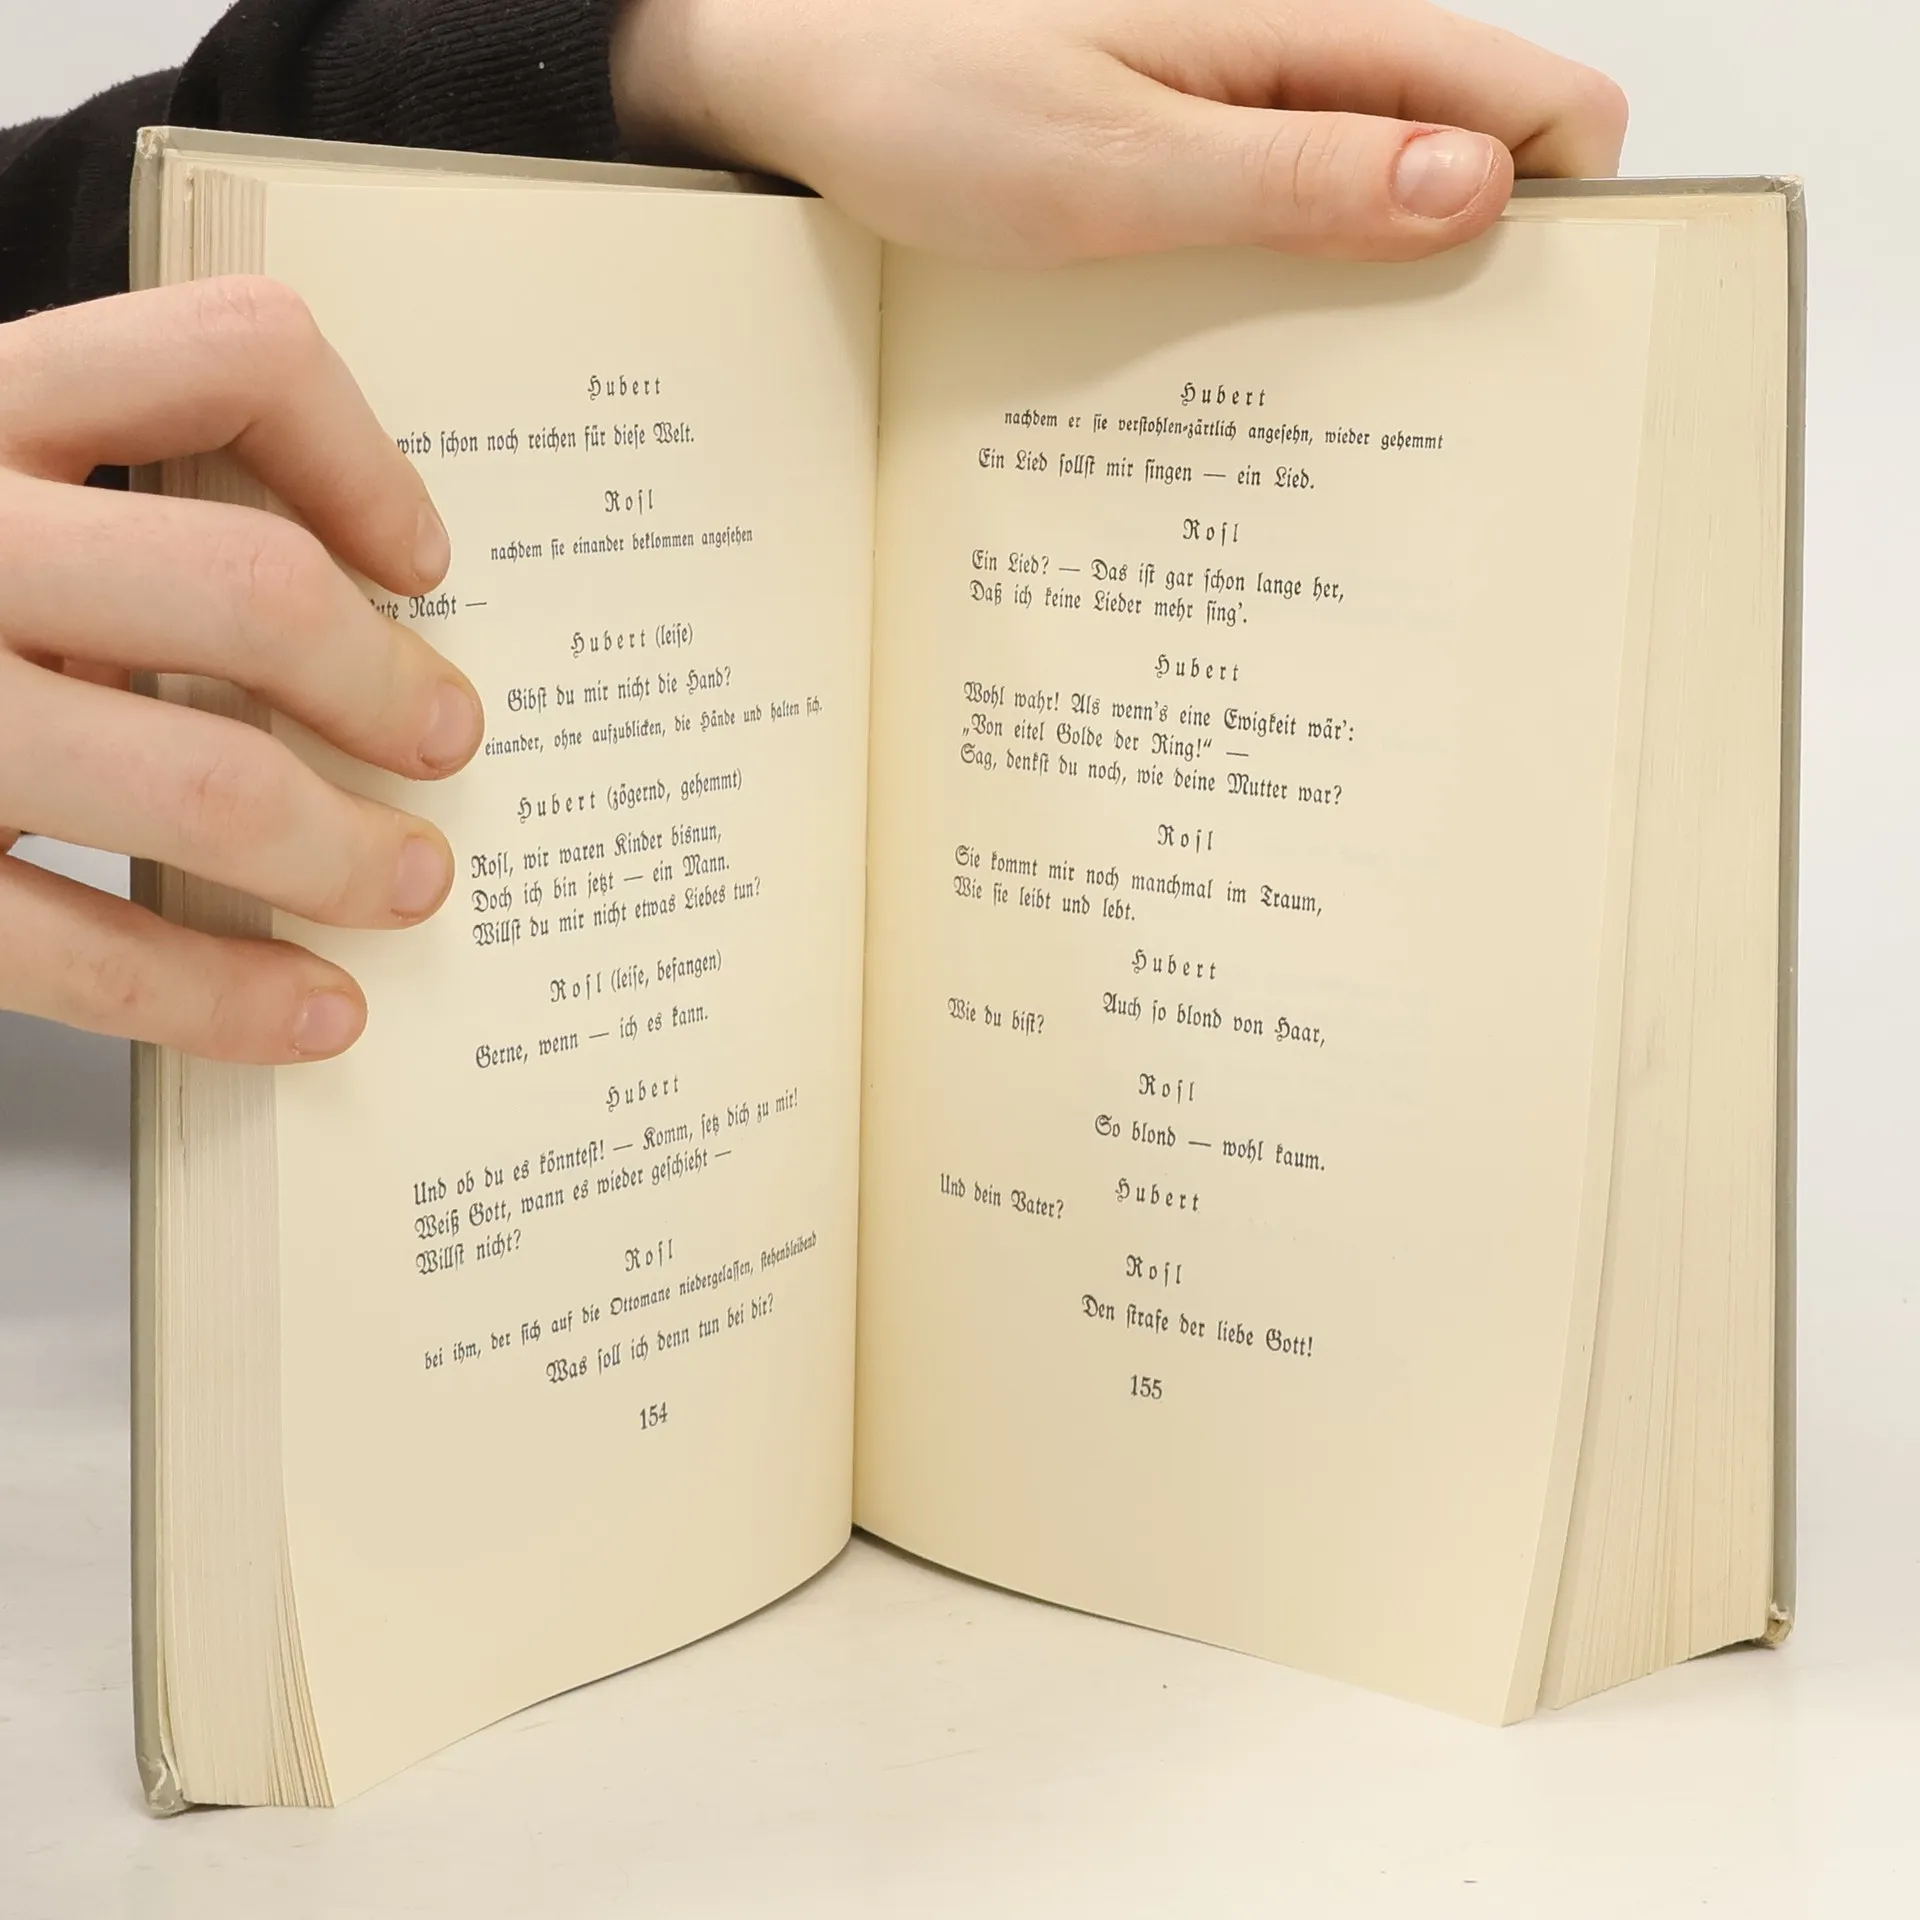 Hubert
wird schon noch reichen für diese Welt.
Rosl
nachdem sie einander beklommen angesehen
Nacht —
Hubert (leise)
Gibst du mir nicht die Hand?
einander, ohne aufzublicken, die Hände und halten sich.
Hubert (zögernd, gehemmt)
Rosl, wir waren Kinder bisnun,
Doch ich bin jetzt — ein Mann.
Willst du mir nicht etwas Liebes tun?
Rosl (leise, befangen)
Gerne, wenn — ich es kann.
Hubert
Und ob du es könntest! — Komm, setz dich zu mir!
Weiß Gott, wann es wieder geschieht —
Willst nicht?
Rosl
bei ihm, der sich auf die Ottomane niedergelassen, stehenbleibend
Was soll ich denn tun bei dir?
154
Hubert
nachdem er sie verstohlen-zärtlich angesehn, wieder gehemmt
Ein Lied sollst mir singen — ein Lied.
Rosl
Ein Lied? — Das ist gar schon lange her,
Daß ich keine Lieder mehr sing'.
Hubert
Wohl wahr! Als wenn's eine Ewigkeit wär':
„Von eitel Golde der Ring!“ —
Sag, denkst du noch, wie deine Mutter war?
Rosl
Sie kommt mir noch manchmal im Traum,
Wie sie leibt und lebt.
Hubert
Auch so blond von Haar,
Wie du bist?
Rosl
So blond — wohl kaum.
Hubert
Und dein Vater?
Rosl
Den strafe der liebe Gott!
155